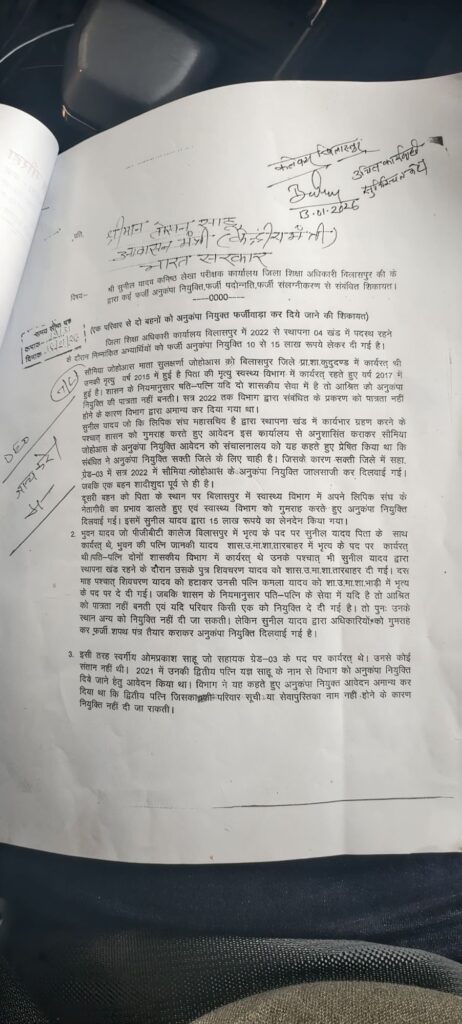 कलेक्टर बिलासपुर
उचित कार्यवाही
सुनिश्चित करें
13.01.2026
प्रति,
श्रीमान तोखन साहू
आवासन मंत्री (केन्द्रीय मंत्री)
भारत सरकार
विषय:– श्री सुनील यादव कनिष्ठ लेखा परीक्षक कार्यालय जिला शिक्षा अधिकारी बिलासपुर की के
द्वारा कई फर्जी अनुकंपा नियुक्ति,फर्जी पदोन्नति,फर्जी संलग्नीकरण से संबंधित शिकायत।
-----0000----
(एक परिवार से दो बहनों को अनुकंपा नियुक्त फर्जीवाड़ा कर दिये जाने की शिकायत)
जिला शिक्षा अधिकारी कार्यालय बिलासपुर में 2022 से स्थापना 04 खंड में पदस्थ रहने
से दौरान निम्नांकित अभ्यार्थियों को फर्जी अनुकंपा नियुक्ति 10 से 15 लाख रूपये लेकर दी गई है।
सौमिया जोहोआस माता सुलक्षणा जोहोआस को बिलासपुर जिले प्रा.शा.कुदुदण्ड में कार्यरत थी
उनकी मृत्यु वर्ष 2015 में हुई है पिता की मृत्यु स्वास्थ्य विभाग में कार्यरत रहते हुए वर्ष 2017 में
हुई है। शासन के नियमानुसार पति–पत्नि यदि दो शासकीय सेवा में है तो आश्रित को अनुकंपा
नियुक्ति की पात्रता नहीं बनती। सत्र 2022 तक विभाग द्वारा संबंधित के प्रकरण को पात्रता नहीं
होने के कारण विभाग द्वारा अमान्य कर दिया गया था।
सुनील यादव जो कि लिपिक संघ महासचिव है द्वारा स्थापना खंड में कार्यभार ग्रहण करने के
पश्चात् शासन को गुमराह करते हुए आवेदन इस कार्यालय से अनुशासित कराकर सौमिया
जोहोआस के अनुकंपा नियुक्त आवेदन को संचालनालय को यह कहते हुए प्रेषित किया था कि
संबंधित ने अनुकंपा नियुक्ति सक्ती जिले के लिए चाही है। जिसके कारण सक्ती जिले में सहा.
ग्रेड–03 में सत्र 2022 में सौमिया जोहोआस के अनुकंपा नियुक्ति जालसाजी कर दिलवाई गई।
जबकि एक बहन शादीशुदा पूर्व से ही है।
दूसरी बहन को पिता के स्थान पर बिलासपुर में स्वास्थ्य विभाग में अपने लिपिक संघ के
नेतागीरी का प्रभाव डालते हुए एवं स्वास्थ्य विभाग को गुमराह करते हुए अनुकंपा नियुक्ति
दिलवाई गई। इसमें सुनील यादव द्वारा 15 लाख रूपये का लेनदेन किया गया।
2. भुवन यादव जो पीजीबीटी कालेज बिलासपुर में भृत्य के पद पर सुनील यादव पिता के साथ
कार्यरत् थे, भुवन की पत्नि जानकी यादव शास.उ.मा.शा.तारबाहर में भृत्य के पद पर कार्यरत्
थी।पति–पत्नि दोनों शासकीय विभाग में कार्यरत् थे उनके पश्चात् भी सुनील यादव द्वारा
स्थापना खंड रहने के दौरान उसके पुत्र शिवचरण यादव को शास.उ.मा.शा.तारबाहर दी गई। दस
माह पश्चात् शिवचरण यादव को हटाकर उनसी पत्नि कमला यादव को शा.उ.मा.शा.भाड़ी में भृत्य
के पद पर दे दी गई। जबकि शासन के नियमानुसार पति–पत्नि के सेवा में यदि है तो आश्रित
को पात्रता नहीं बनती एवं यदि परिवार किसी एक को नियुक्ति दे दी गई है। तो पुनः उनके
स्थान अन्य को नियुक्ति नहीं दी जा सकती। लेकिन सुनील यादव द्वारा अधिकारियों को गुमराह
कर फर्जी शपथ पत्र तैयार कराकर अनुकंपा नियुक्ति दिलवाई गई है।
3. इसी तरह स्वर्गीय ओमप्रकाश साहू जो सहायक ग्रेड–03 के पद पर कार्यरत् थे। उनसे कोई
संतान नहीं थी। 2021 में उनकी द्वितीय पत्नि यज्ञ साहू के नाम से विभाग को अनुकंपा नियुक्ति
दिये जाने हेतु आवेदन किया था। विभाग ने यह कहते हुए अनुकंपा नियुक्त आवेदन अमान्य कर
दिया था कि द्वितीय पत्नि जिसका परिवार सूची या सेवापुस्तिका नाम नही होने के कारण
नियुक्ति नहीं दी जा सकती।
DEO